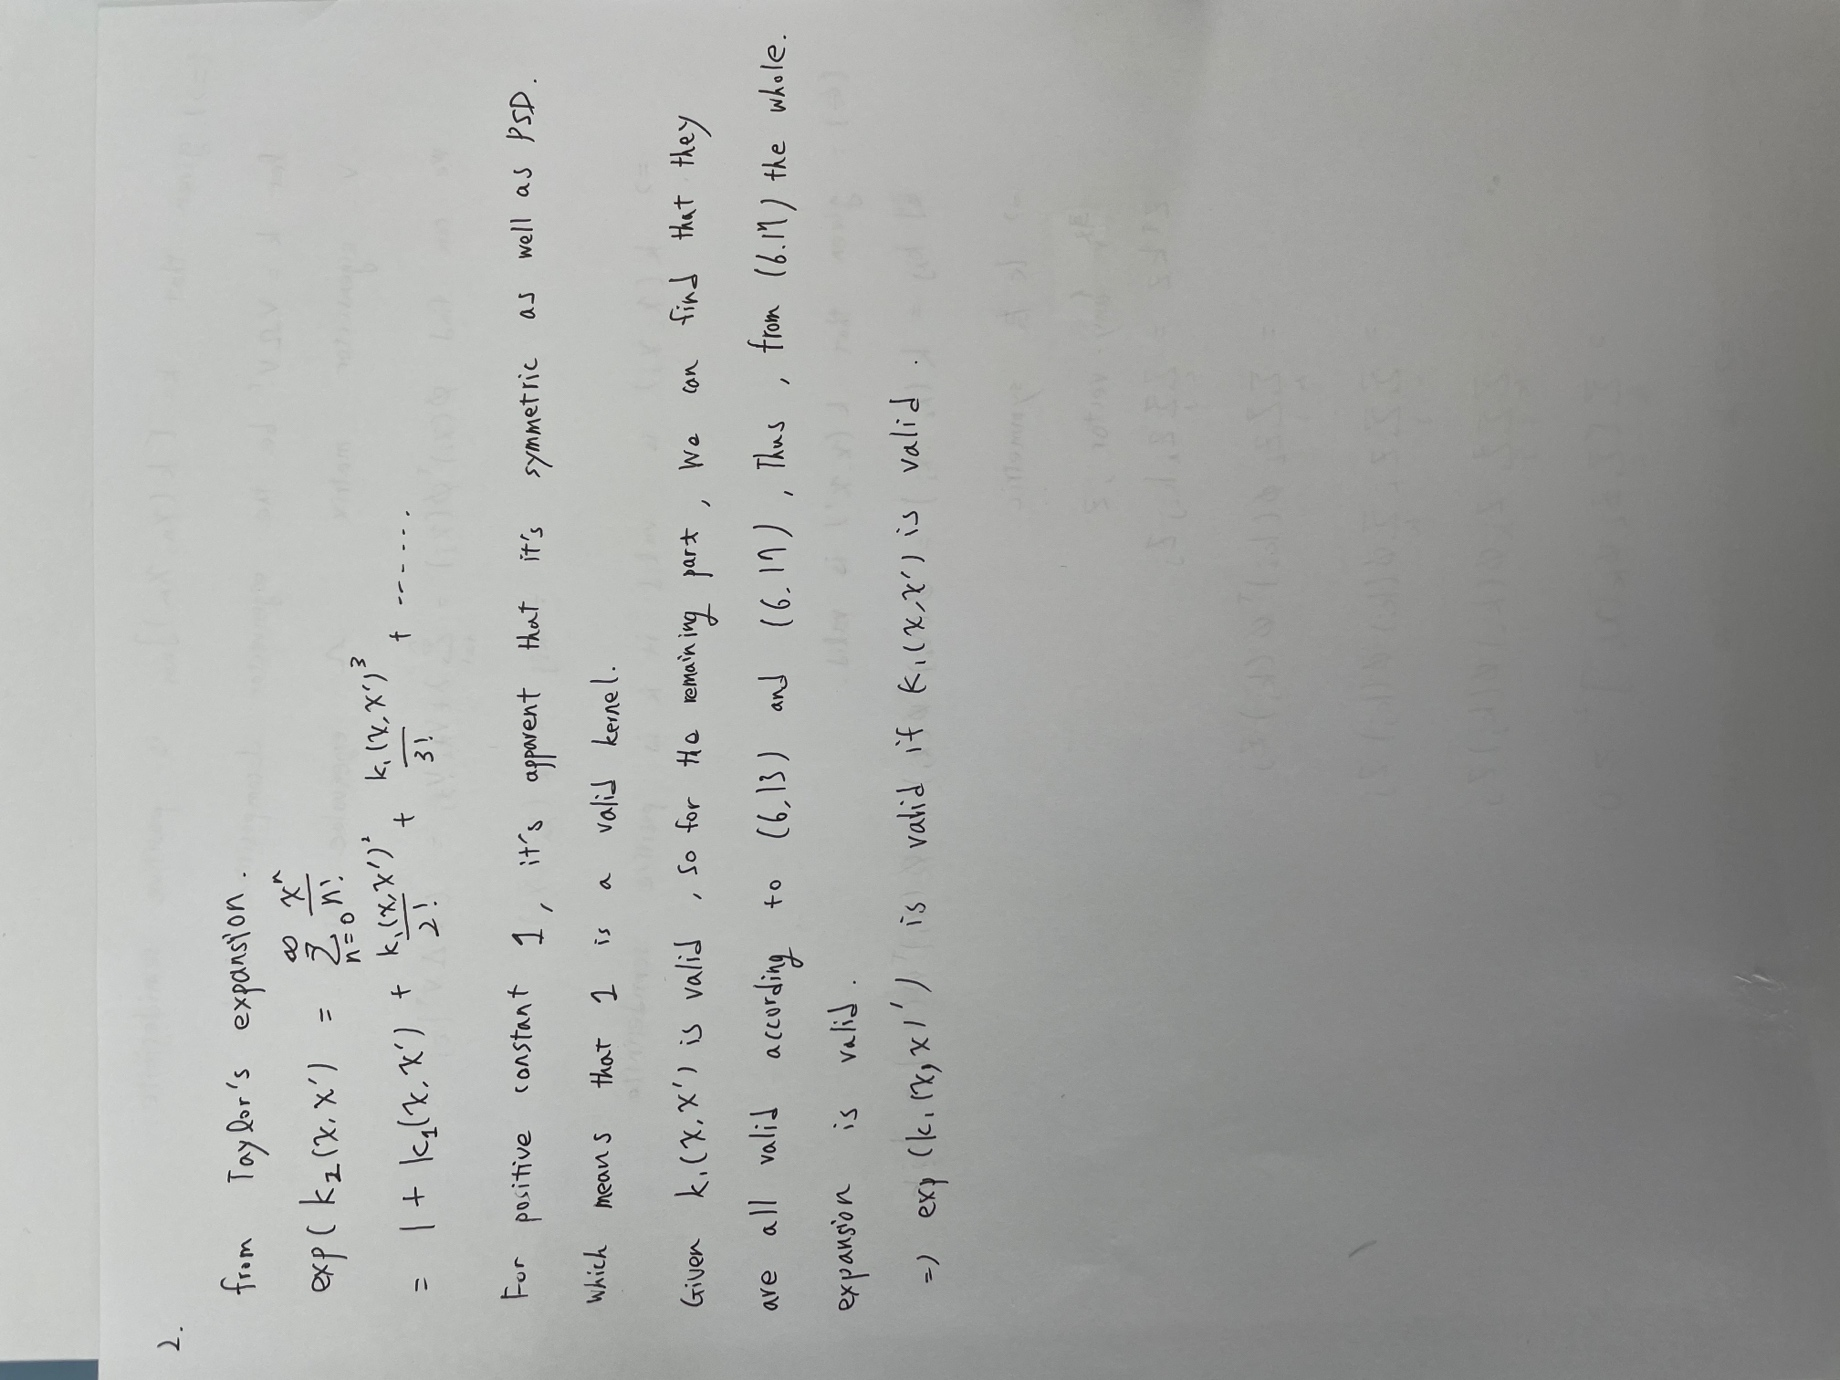 2.
from Taylor's expansion.
exp(k₁(x,x') = ∞∑n=0 xⁿ/n!
= 1 + k₁(x,x') + k₁(x,x')²/2! + k₁(x,x')³/3! + ......
For positive constant 1, it's apparent that it's symmetric as well as PSD.
which means that 1 is a valid kernel.
Given k₁(x,x') is valid, so for the remaining part, We can find that they
are all valid according to (6.13) and (6.17), Thus, from (6.17) the whole.
expansion is valid.
=) exp(k₁(x,x)') is valid if k₁(x,x') is valid.